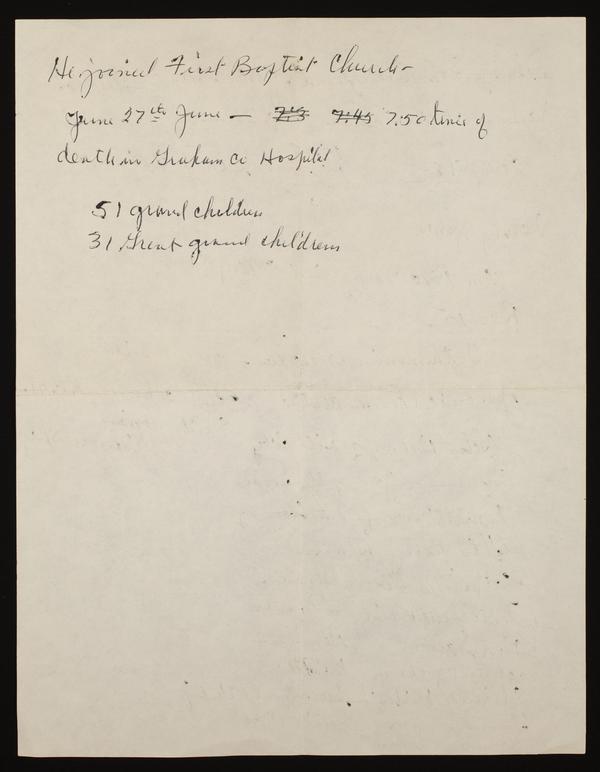 He joined First Baptist Church -
June 27th June - 7:45 7:50 time of
death in Graham Co Hospital
51 grand children
31 Great grand childrens